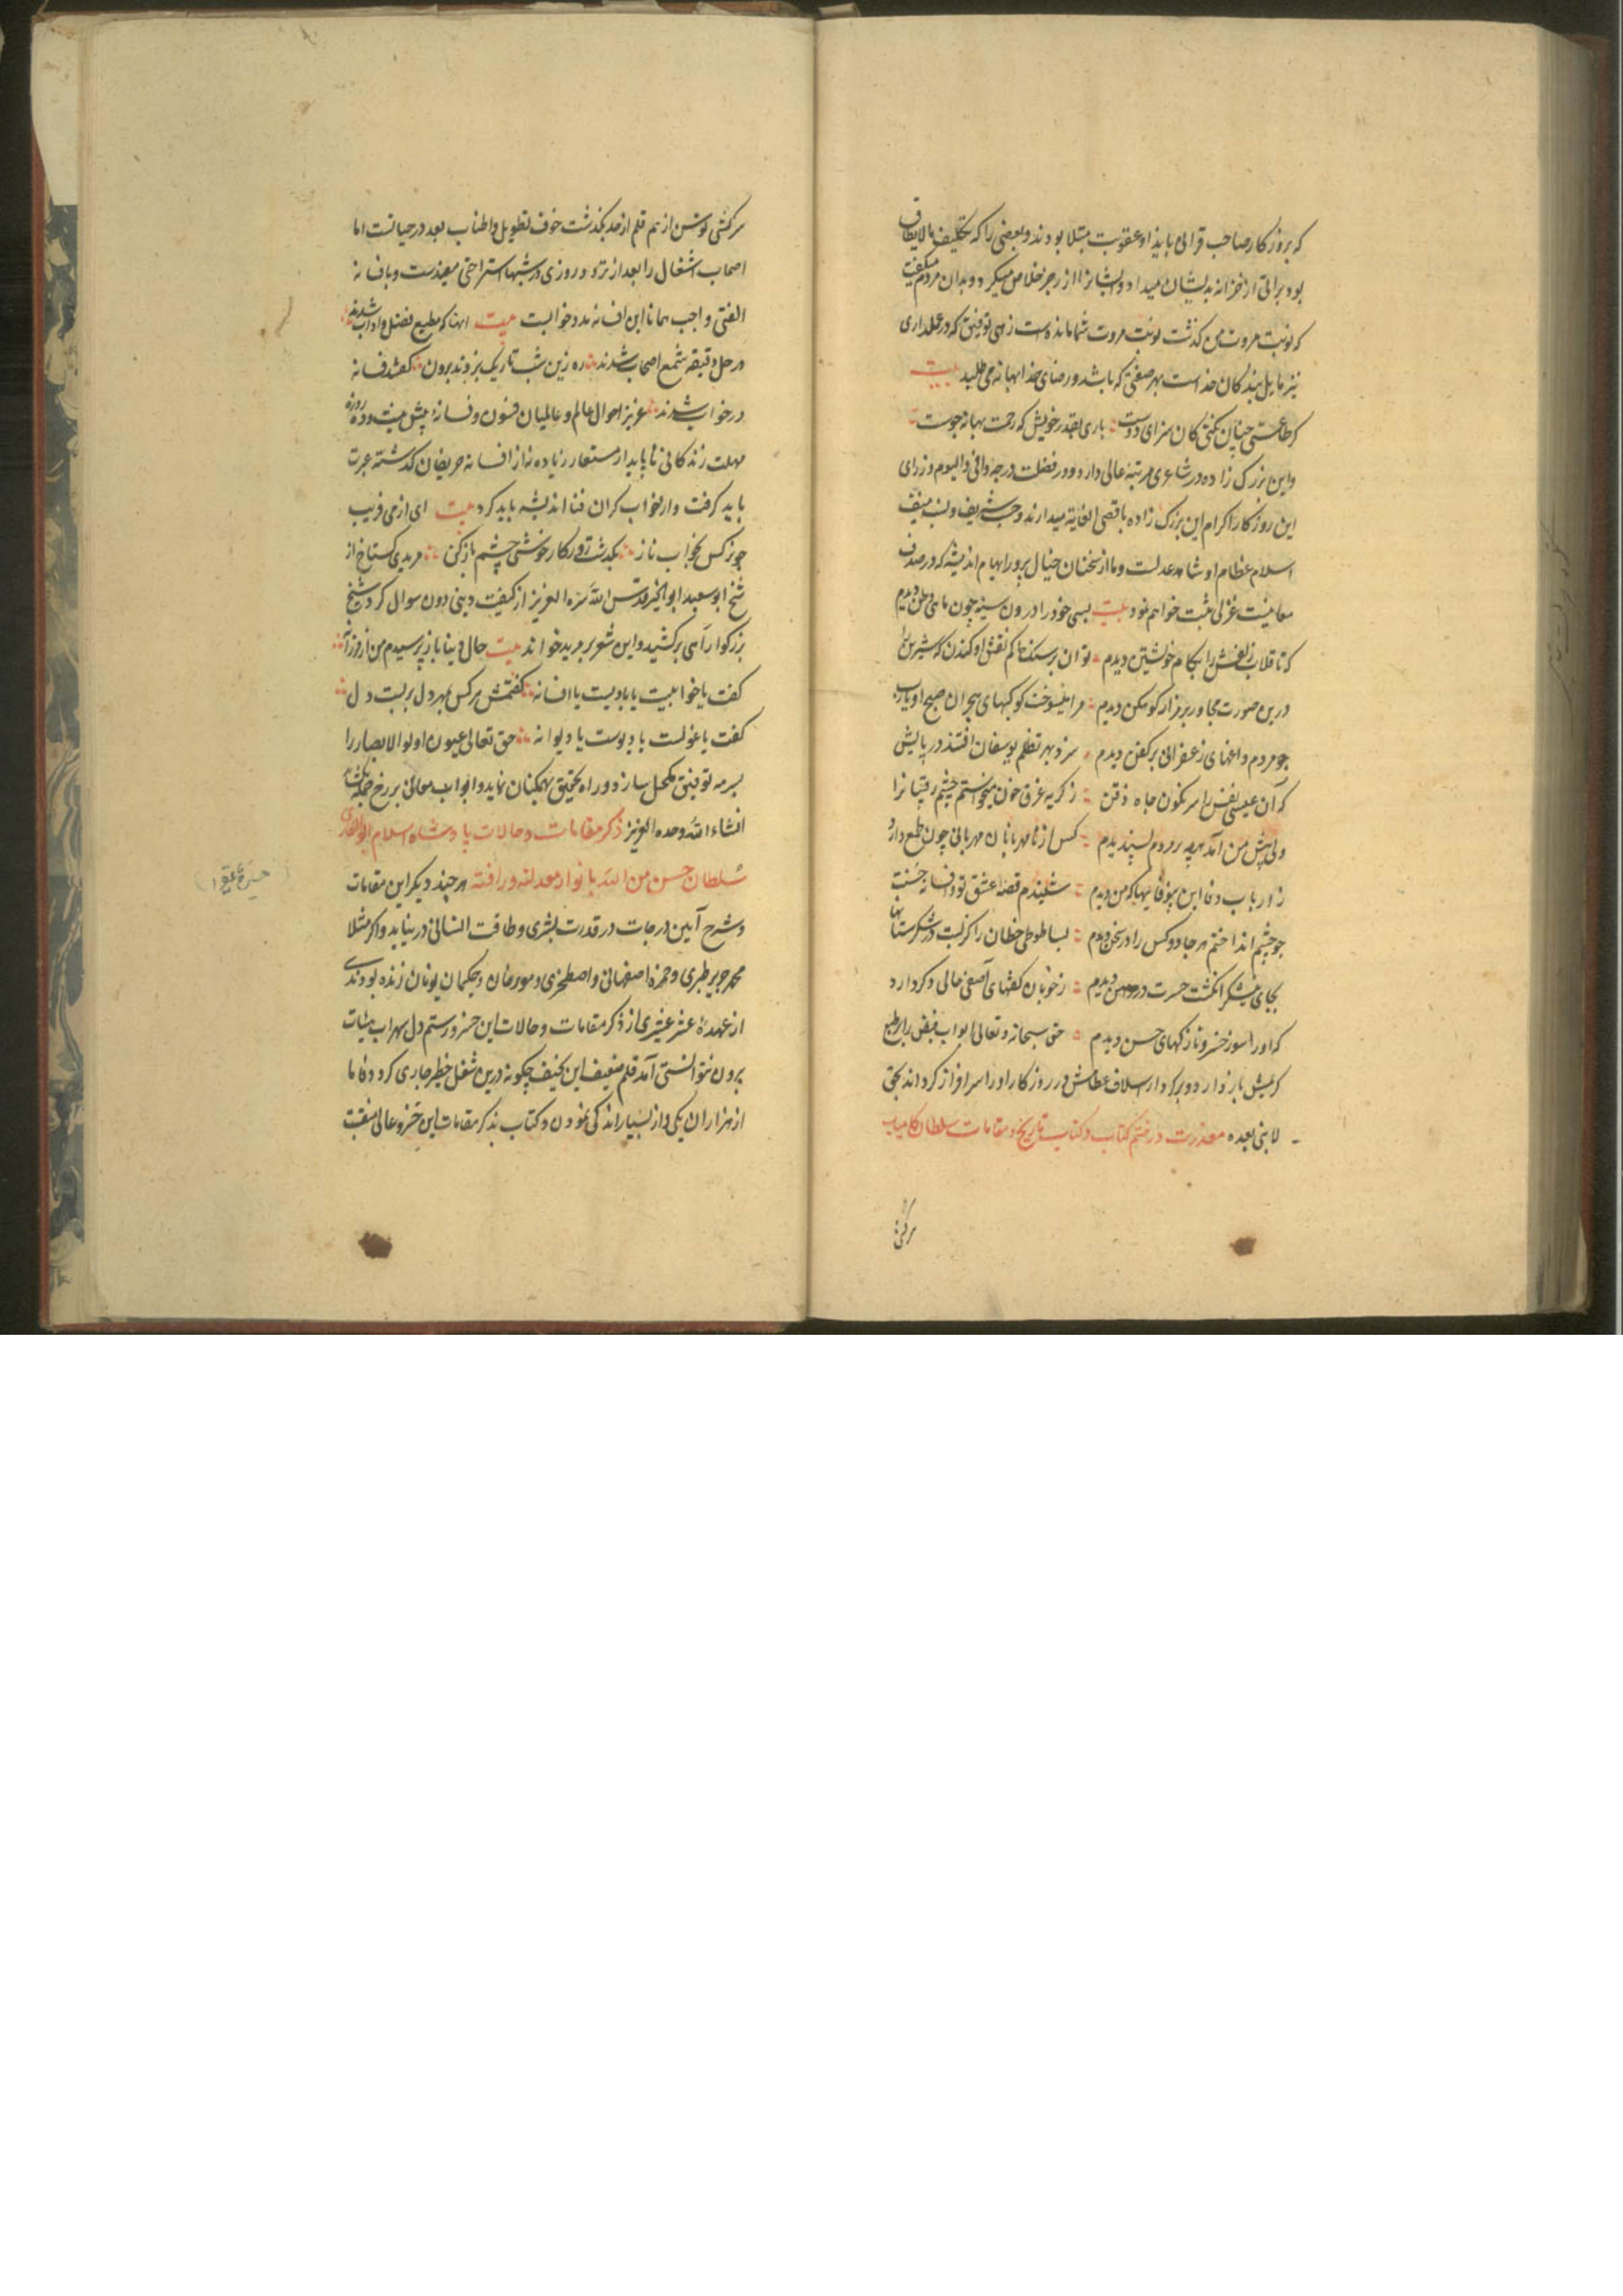 که بروزکار صاحب قرانی بایذا و عقوبت مبتلا بودند و بعضی را که تکلیف مالایطاق
بود براتی از خزانه بدیشان میداد و ایشانرا از زجر خلاص میکرد و بدان مردم میکفت
که نوبت مروت من کذشت نوبت مروت شما مانده است زهی توفیق که در عملداری
نیز مایل بندکان خداست بهر صفتی که باشد و رضای خدا بهانه می طلبد بیت
کر طاعتی چنان نکنی کان سزای دوست باری بقدر خویش که رحمت بهانه جوست
و این بزرک زاده در شاعری مرتبهٔ عالی دارد و در فضلت درجه وافی و الیوم وزرای
این روزکار اکرام این بزرک زاده باقصی الغایة میدارند و حسب شریف و نسب منیف
اسلام عظام او شاهد عدلست و ما از سخنان خیال پرور ابهام اندیشه که در صدف
معانیست غزلی ثبت خواهم نمود بیت بسی خود را درون سینه چون ماهی وطن دیدم
که تا قلاب زلفش را بکام خویشتن دیدم توان بر سنک خاکم نقش او کندن که شیرین را
درین صورت مجاور بر مزار کوهکن دیدم مرا میسوخت کوکبهای هجران صبح او یارب
چو مردم داغهای زعفرانی بر کفن دیدم سزد بهر تظلم یوسفان افتند در پایش
که آن عیسی نفس را سرنکون چاه ذقن ز کریه غرق خون میخواستم چشم رقیبانرا
ولی پیش من آمد هرچه بر مردم پسندیدم کس از نامهربانان مهربانی چون طمع دارد
ز ارباب وفا این بیوفاییها که من دیدم شنیدم قصهٔ عشق تو و افسانه جست
چو چشم انداختم هر جا دو کس را در سخن دیدم بسا طوطی خطان را کز لبت در شکرستانها
بجای نیشکر انکشت حسرت در دهن دیدم ز خوبان کفتهای آصفی حالی دکر دارد
که او را سوز خسرو نازکهای حسن دیدم حق سبحانه و تعالی ابواب فیض را بر طبع
کریمش باز دارد و بر کردار اسلاف عظامش در روزکار او را سرافراز کرداند بحق
لا نبی بعده معذرت در ختم کتاب و کتاب تاریخ و مقامات سلطان کامیاب
سرکشی
سرکشی توسن از هم قلم از حد بکذشت خوف تطویل و اطناب بعد در حیاتست اما
اصحاب اشغال را بعد از تردد روزی در شبها استراحتی مفیدست و بافسانه
الفتی واجب همانا این افسانه مدد خوابست بیت آنها که مطیع فضل و آداب شدند
در حل دقیقه شمع اصحاب شدند ره زین شب تاریک نبردند برون کفتند فسانه
در خواب شدند عزیز احوال عالم و عالمیان فسون و فسانه بیش نیست و ده روزه
مهلت زندکانی ناپایدار مستعار زیاده نه از افسانه حریفان کذشته عبرت
باید کرفت و از خواب کران فنا اندیشه باید کرد بیت ای از می فریب
چو نرکس بخواب ناز بکذشت دور کار خوشی چشم باز کن مریدی کستاخ از
شیخ ابوسعید ابوالخیر قدس الله سره العزیز از کیفیت دنیی دون سوال کرد شیخ
بزرکوار آهی برکشید و این شعر بر مرید خواند بیت حال دنیا باز پرسیدم من از فرزانهٔ
کفت یا خوابیست یا بادیست یا افسانه کفتمش هر کس بهر دل بر بست دل
کفت یا غولست یا دیوست یا دیوانه حق تعالی عیون اولوالابصار را
بسرمه توفیق مکحل سازد و راه تحقیق بهمکنان نماید و ابواب معانی بر رخ همه بکشاید
انشاء الله وحده العزیز ذکر مقامات و حالات پادشاه اسلام ابوالغازی
سلطان حسین من الله بانوار معدلته و رافته هر چند دیکر این مقامات
و شرح آیین درجات در قدرت بشری و طاقت انسانی درنیاید و اکر مثلا
محمد جریر طبری و حمزه اصفهانی و اصطخری و مورخان و حکیمان یونان زنده بودندی
از عهدهٔ عشر عشیری از ذکر مقامات و حالات این خسرو رستم دل سهراب ثبات
برون نتوانستی آمد قلم ضعیف این نحیف چکونه درین شغل خطیر جاری کردد اما
از هزاران یکی و از بسیار اندکی نمودن و کتاب بذکر مقامات این خسرو عالی منقبت